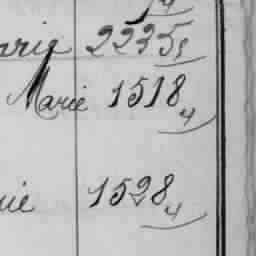 arie 2235
Marie 1518 4
rie 1528 4